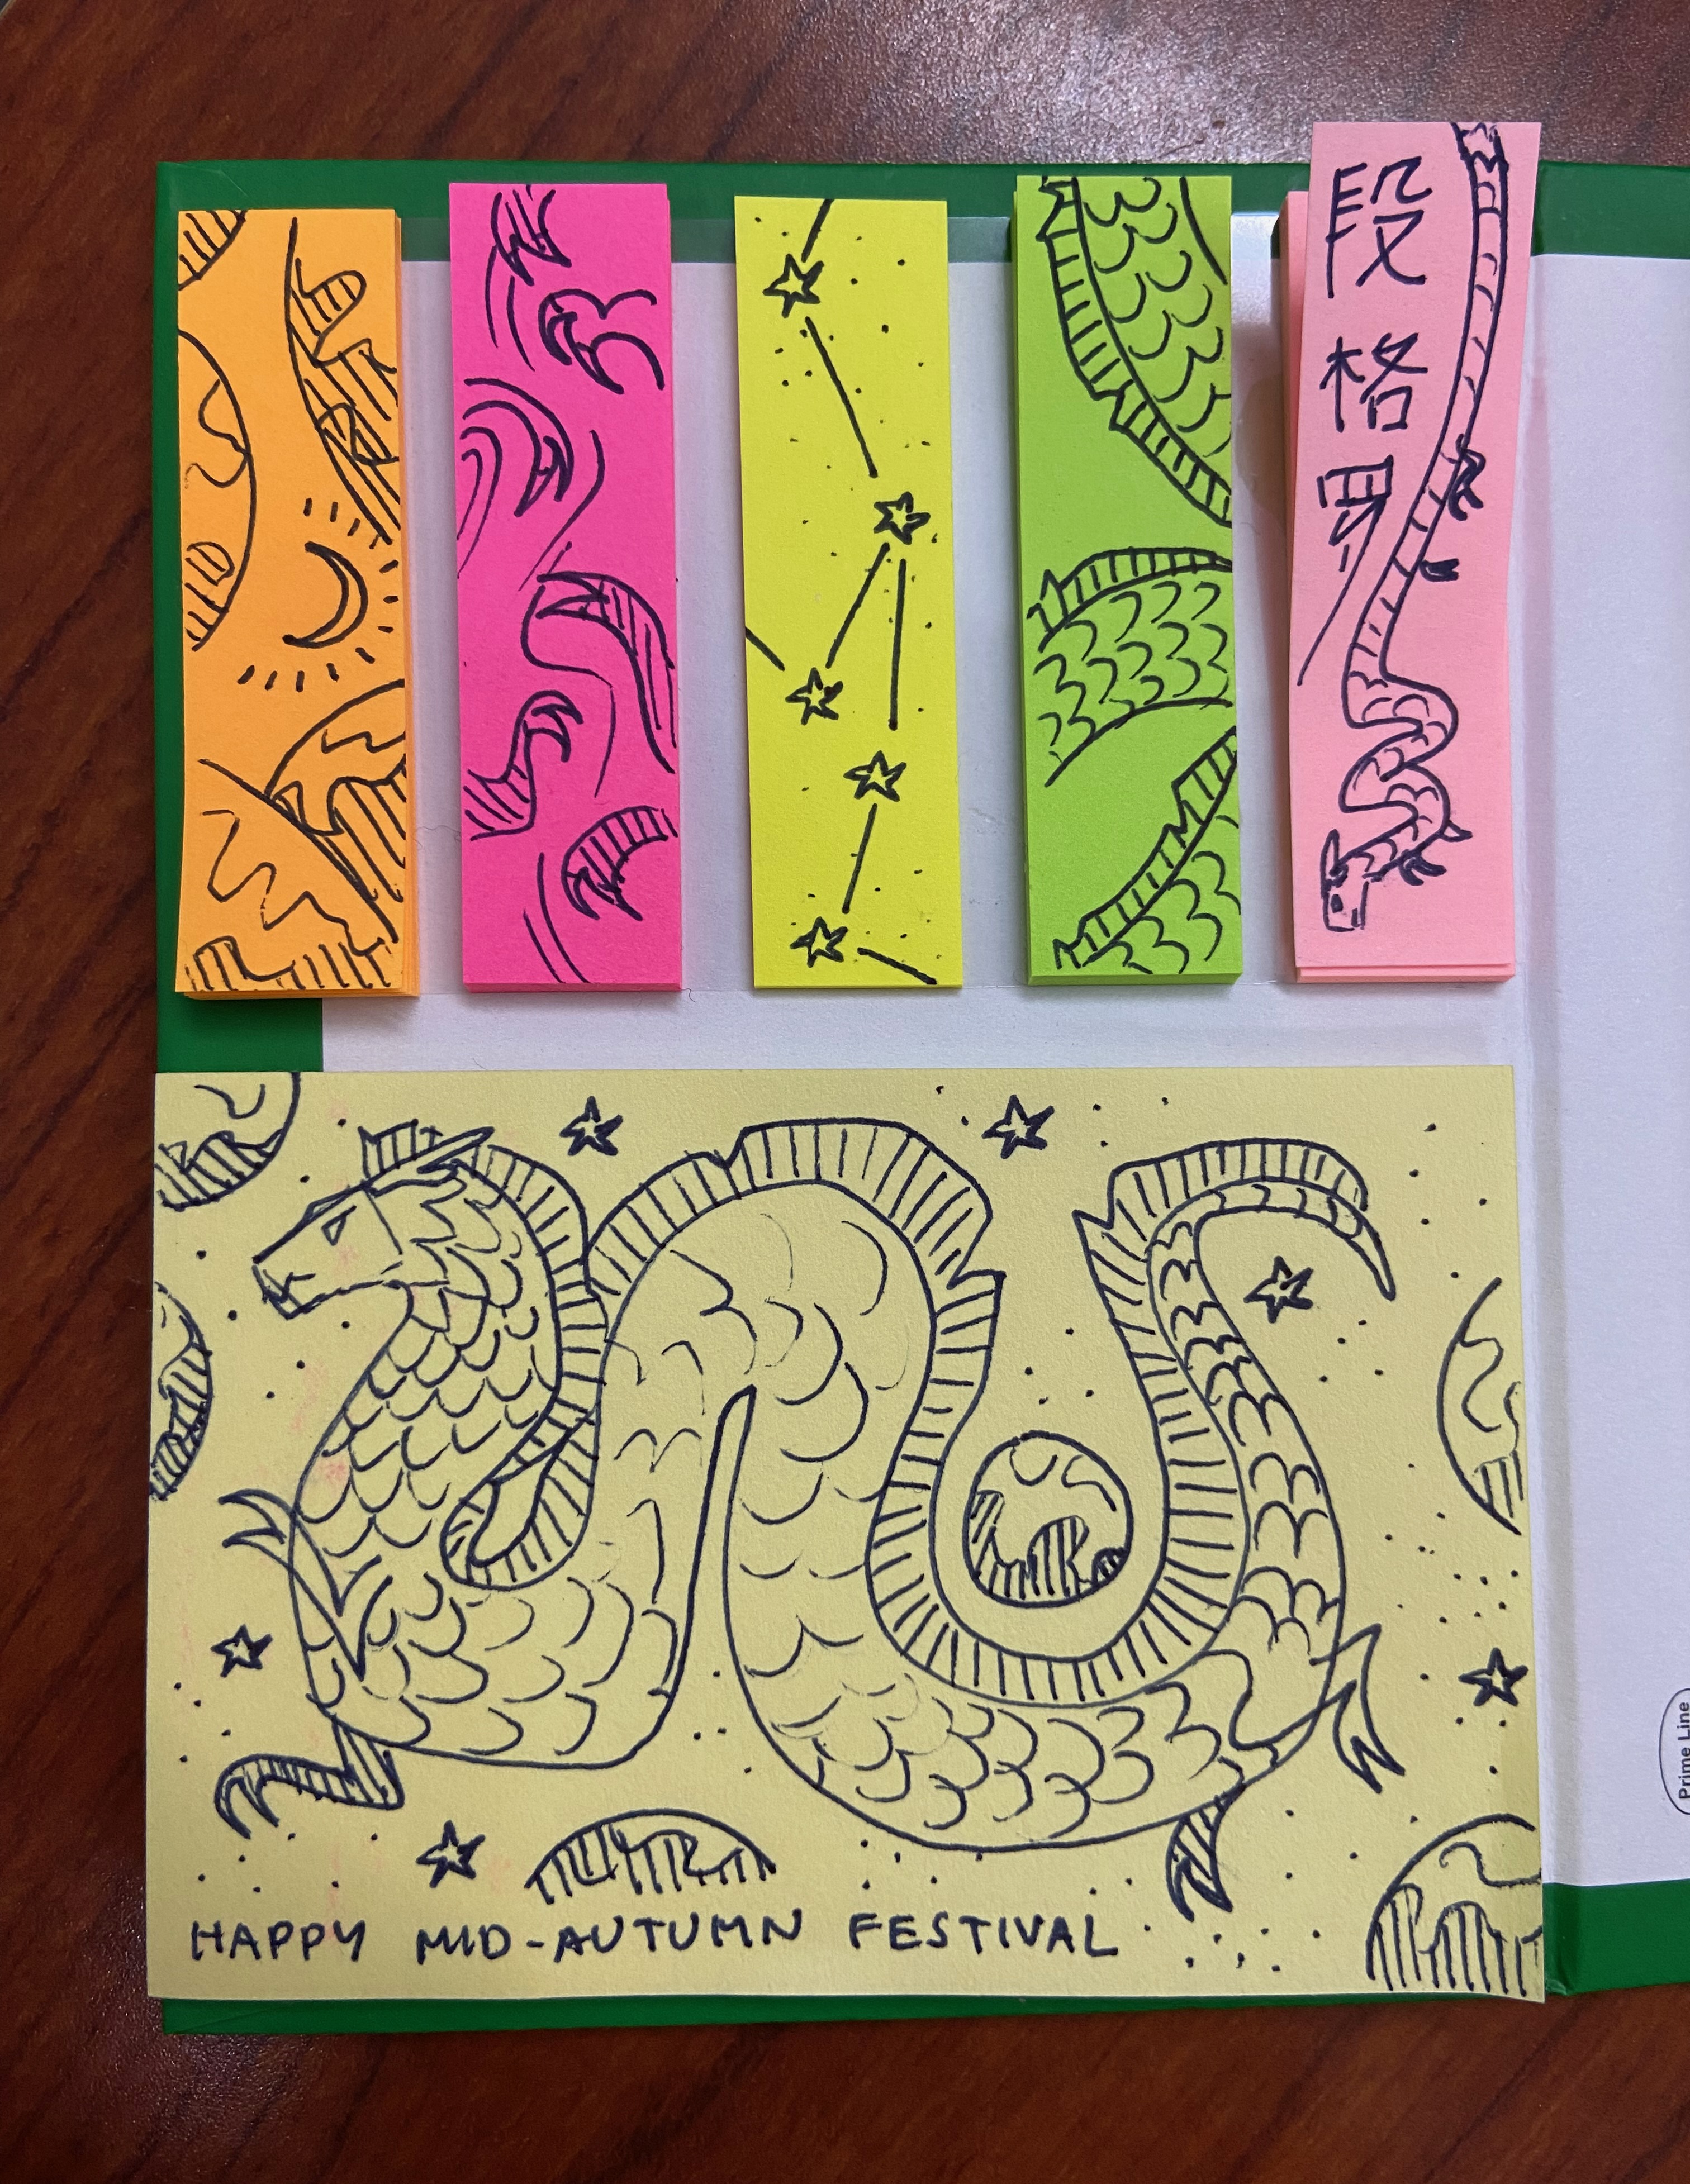 段格罗
HAPPY MID-AUTUMN FESTIVAL
Prime Line